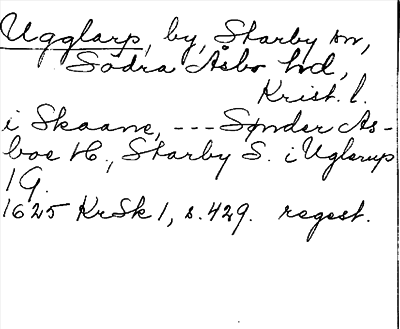 Ugglarp, by, Starby sn,
Södra Åsbo hd,
Krist. l.
i Skaane, --- Sønder As-
boe H., Starby S. i Uglerup
1 G.
1625 KrSk 1, s. 429. regest.